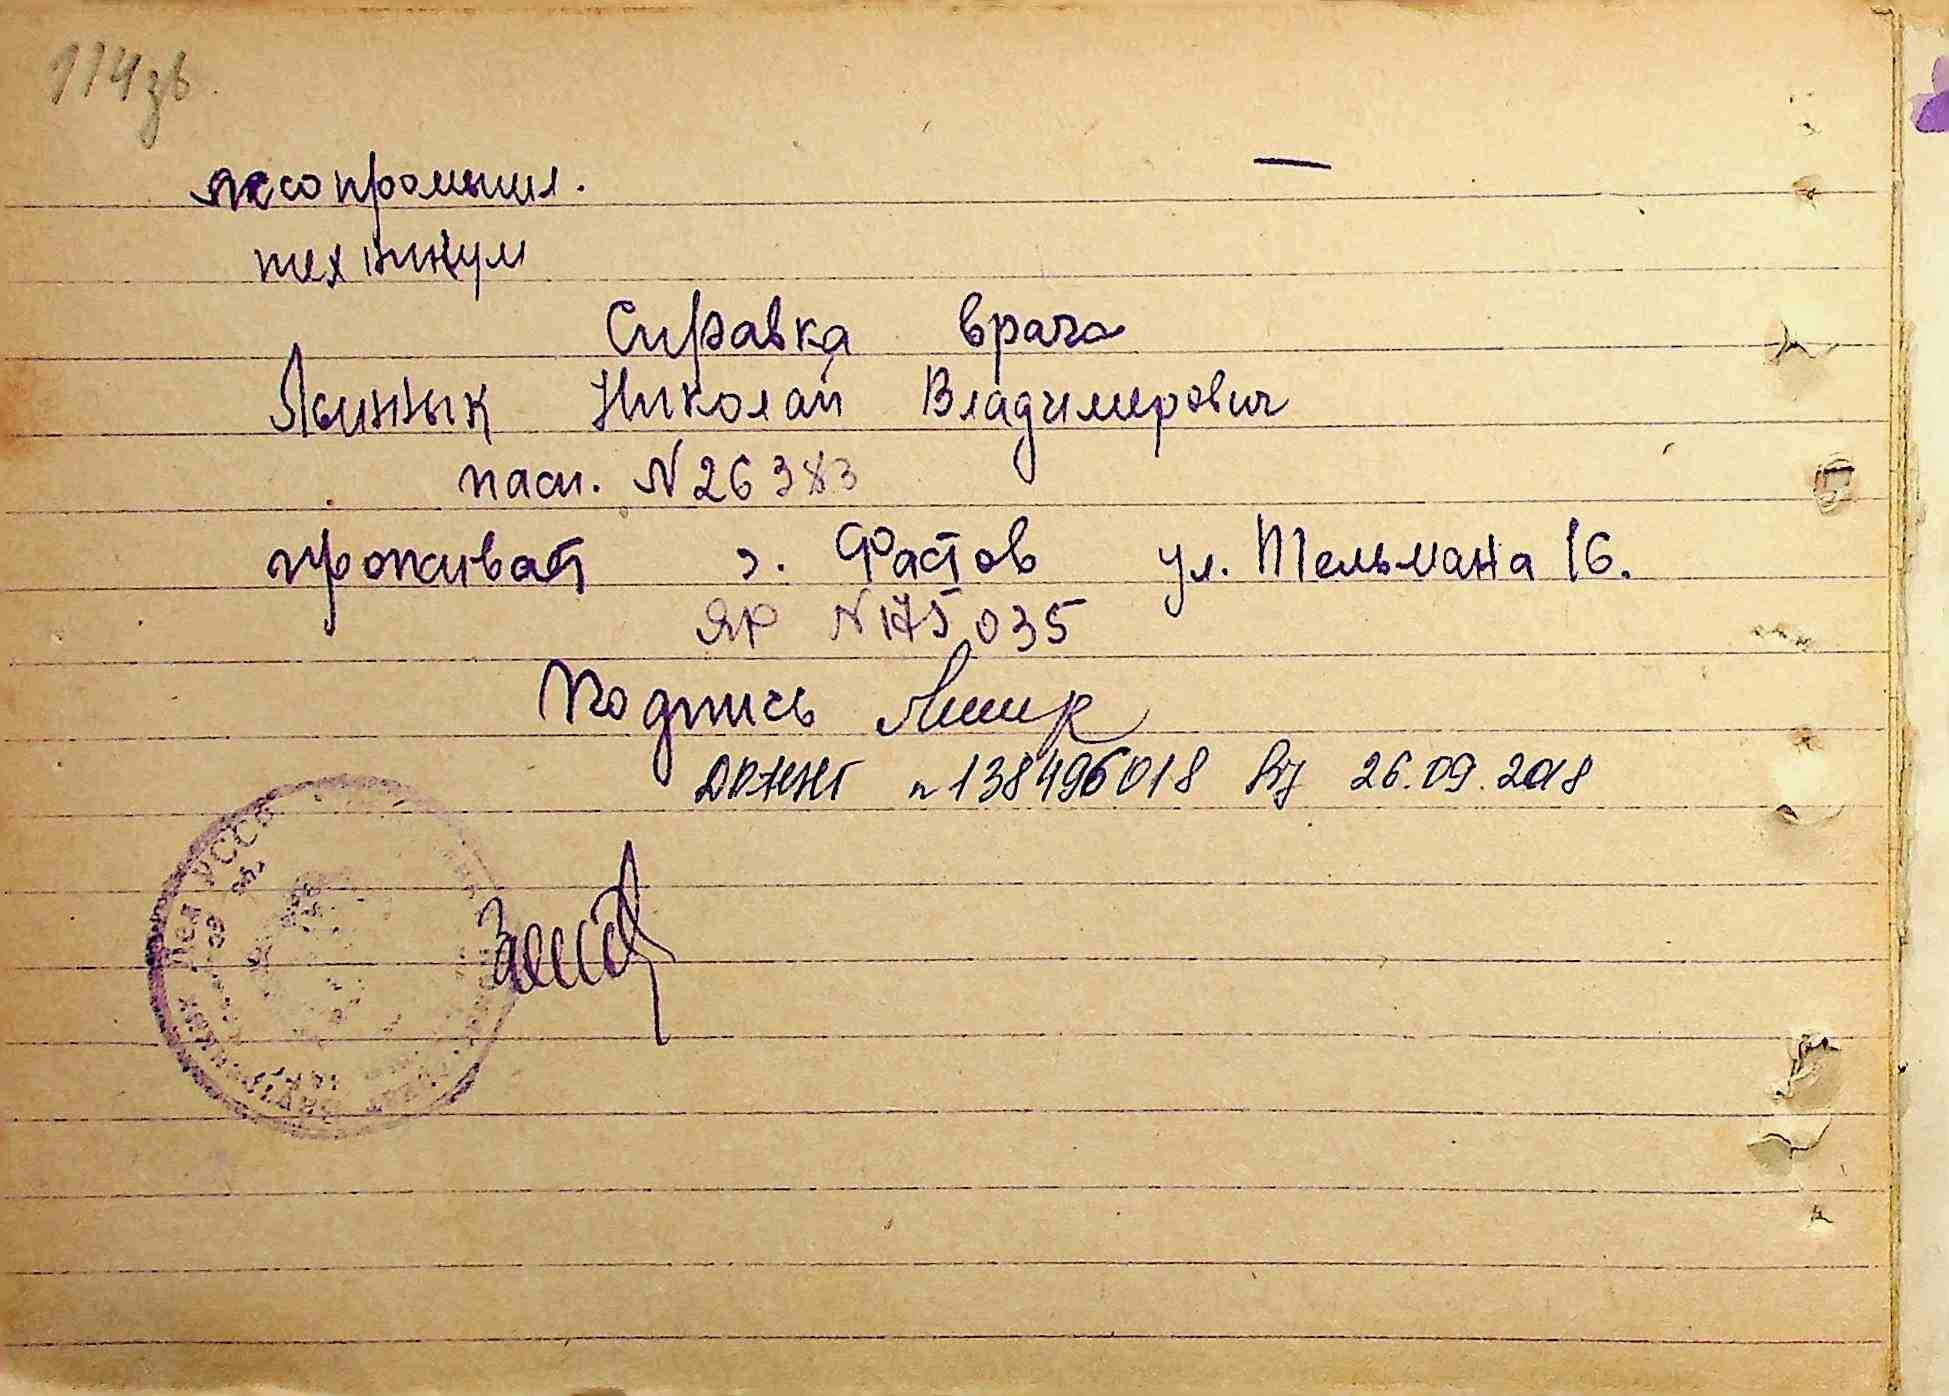 114зв.
лесопромышл.
техникум
Справка врача
Николай Владимерович
пасп. N 26383
проживает г. Фастов ул. Тельмана 16.
ЯР N 175035
Подпись
N 138496018 від 26.09.2018
УССР